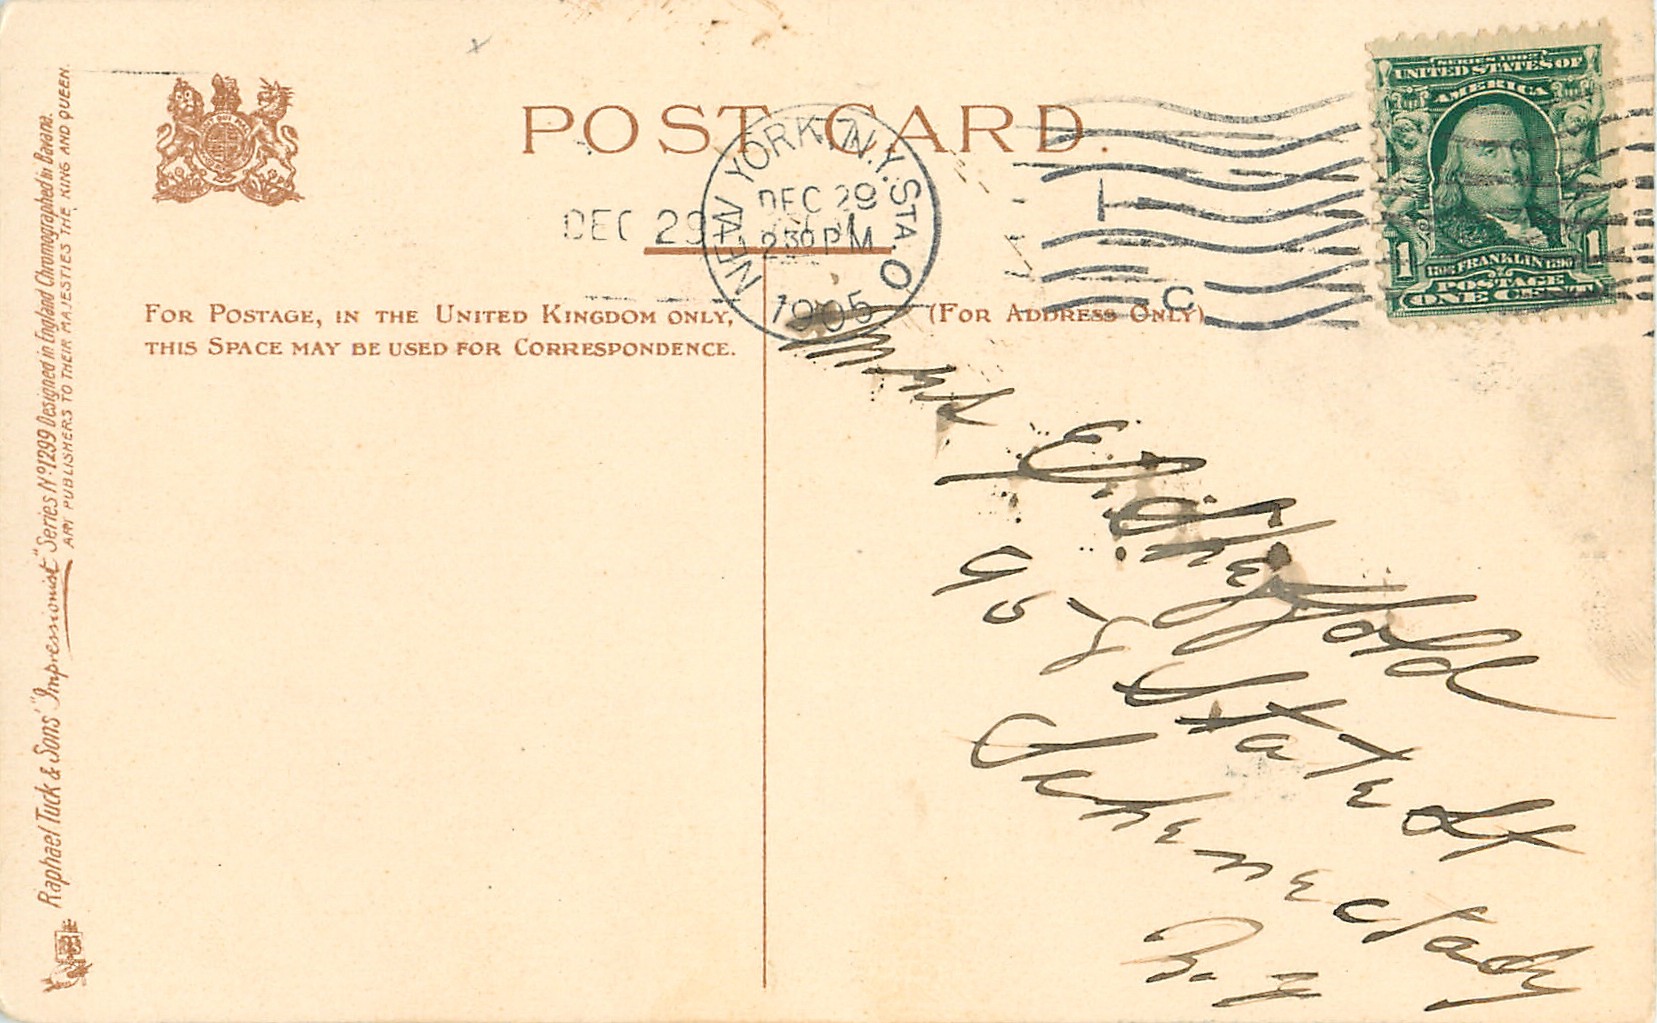 POST CARD.
NEW YORK, N.Y. STA. O
DEC 29
2 30 PM
1905
DEC 29
C
SERIES 1902
UNITED STATES OF
AMERICA
1 1
1706 FRANKLIN 1790
POSTAGE
ONE CENT
FOR POSTAGE, IN THE UNITED KINGDOM ONLY,
THIS SPACE MAY BE USED FOR CORRESPONDENCE.
(FOR ADDRESS ONLY)
Mrs E. D.
State St
Schenectady
N.Y
Raphael Tuck & Sons' "Impressionist" Series Nº 1299 Designed in England Chromographed in Bavaria.
ART PUBLISHERS TO THEIR MAJESTIES THE KING AND QUEEN.